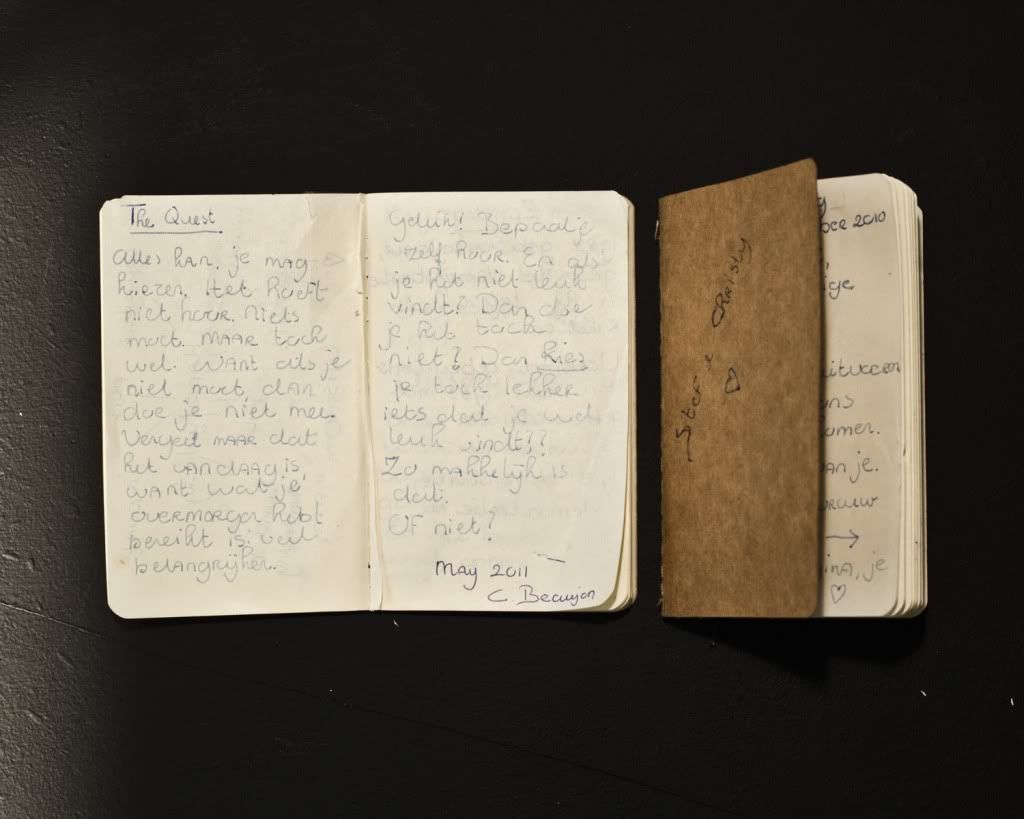 The Quest
Alles kan, je mag
kiezen. Het hoeft
niet hoor. Niets
moet. MAAR toch
wel. WANT als je
niet moet, dan
doe je niet mee.
Vergeet MAAR dat
het vandaag is,
WANT wat je
overmorgen hebt
bereikt is veel
belangrijker.
Geduh! Bepaal je
zelf hoor. En als
je het niet leuk
vindt? Dan doe
je het toch
niet? Dan kies
je toch lekker
iets dat je wel
leuk vindt??
Zo makkelijk is
dat.
OF niet?
May 2011
C. Beaujon
Christy
2010
ige
uitvaeren
ons
kamer.
van je.
vrouw
→
ina, je
♡